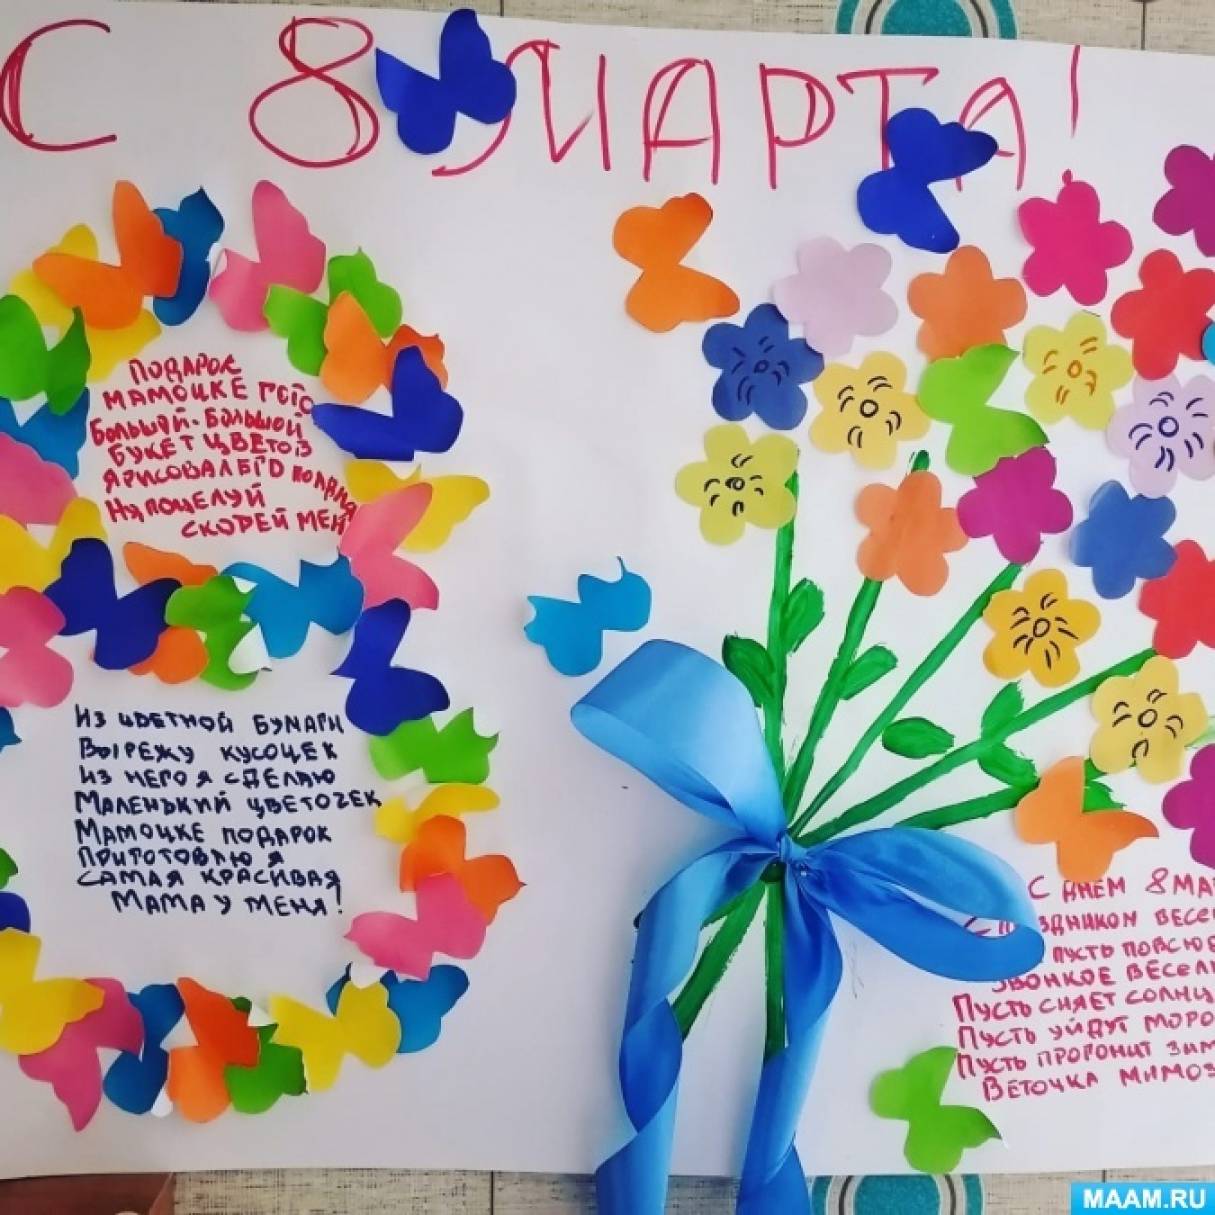 С 8 МАРТА!
ПОДАРОК
МАМОЧКЕ
БОЛЬШОЙ-БОЛЬШОЙ
БУКЕТ ЦВЕТОВ
Я РИСОВАЛ ЕГО
НУ ПОЦЕЛУЙ
СКОРЕЙ МЕН
ИЗ ЦВЕТНОЙ БУМАГИ
ВЫРЕЖУ КУСОЧЕК
ИЗ НЕГО Я СДЕЛАЮ
МАЛЕНЬКИЙ ЦВЕТОЧЕК
МАМОЧКЕ ПОДАРОК
ПРИГОТОВЛЮ Я
САМАЯ КРАСИВАЯ
МАМА У МЕНЯ!
С ДНЕМ 8 МА
ВЕСЕ
ПУСТЬ ПОВСЮ
ЗВОНКОЕ ВЕСЕЛ
ПУСТЬ СИЯЕТ СОЛНЦ
ПУСТЬ УЙДУТ МОРО
ПУСТЬ ПРОГОНИТ ЗИМ
ВЕТОЧКА МИМОЗ
MAAM.RU